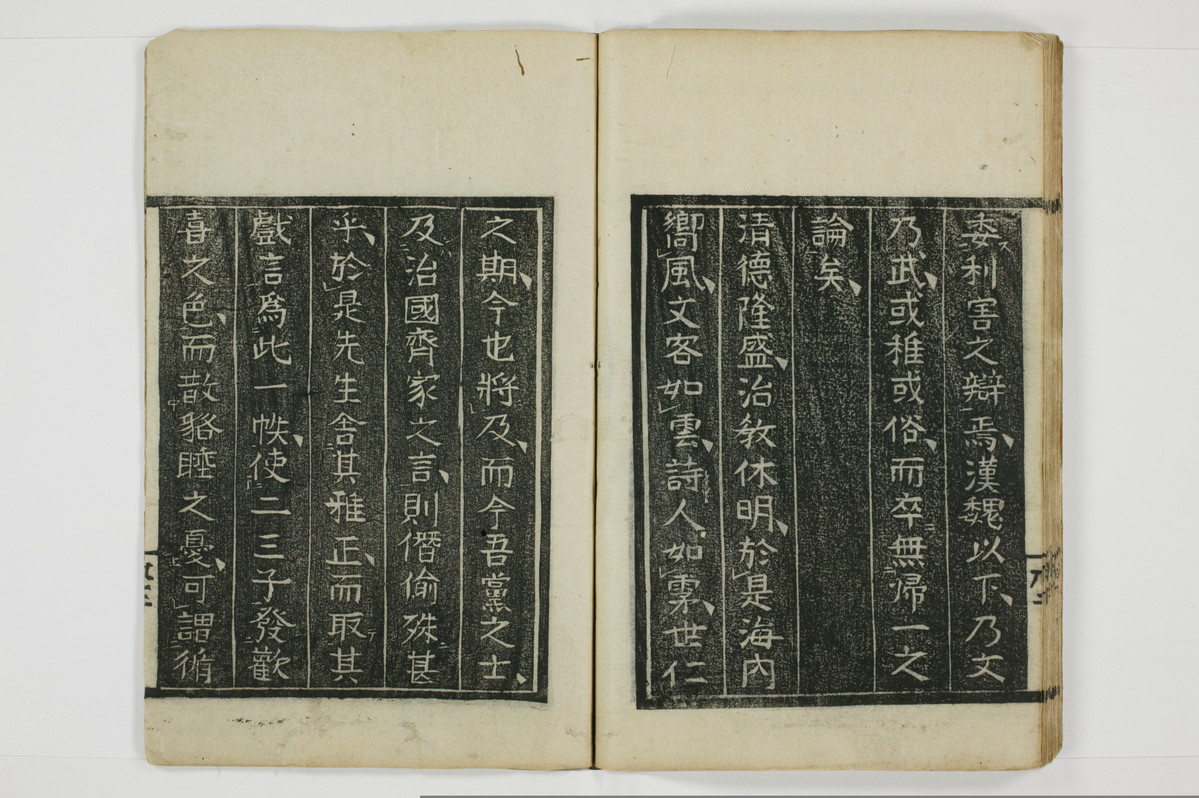 委利害之辯焉漢魏以下乃文
乃武或稚或俗而卒無歸一之
論矣
清德隆盛治敎休明於是海內
嚮風文客如雲詩人如雲世仁
之期今也將及而今吾黨之士
及治國齊家之言則僭偷殊甚
乎於是先生舍其雅正而取其
戲言爲此一帙使二三子發歡
喜之色而散貉睡之憂可謂循